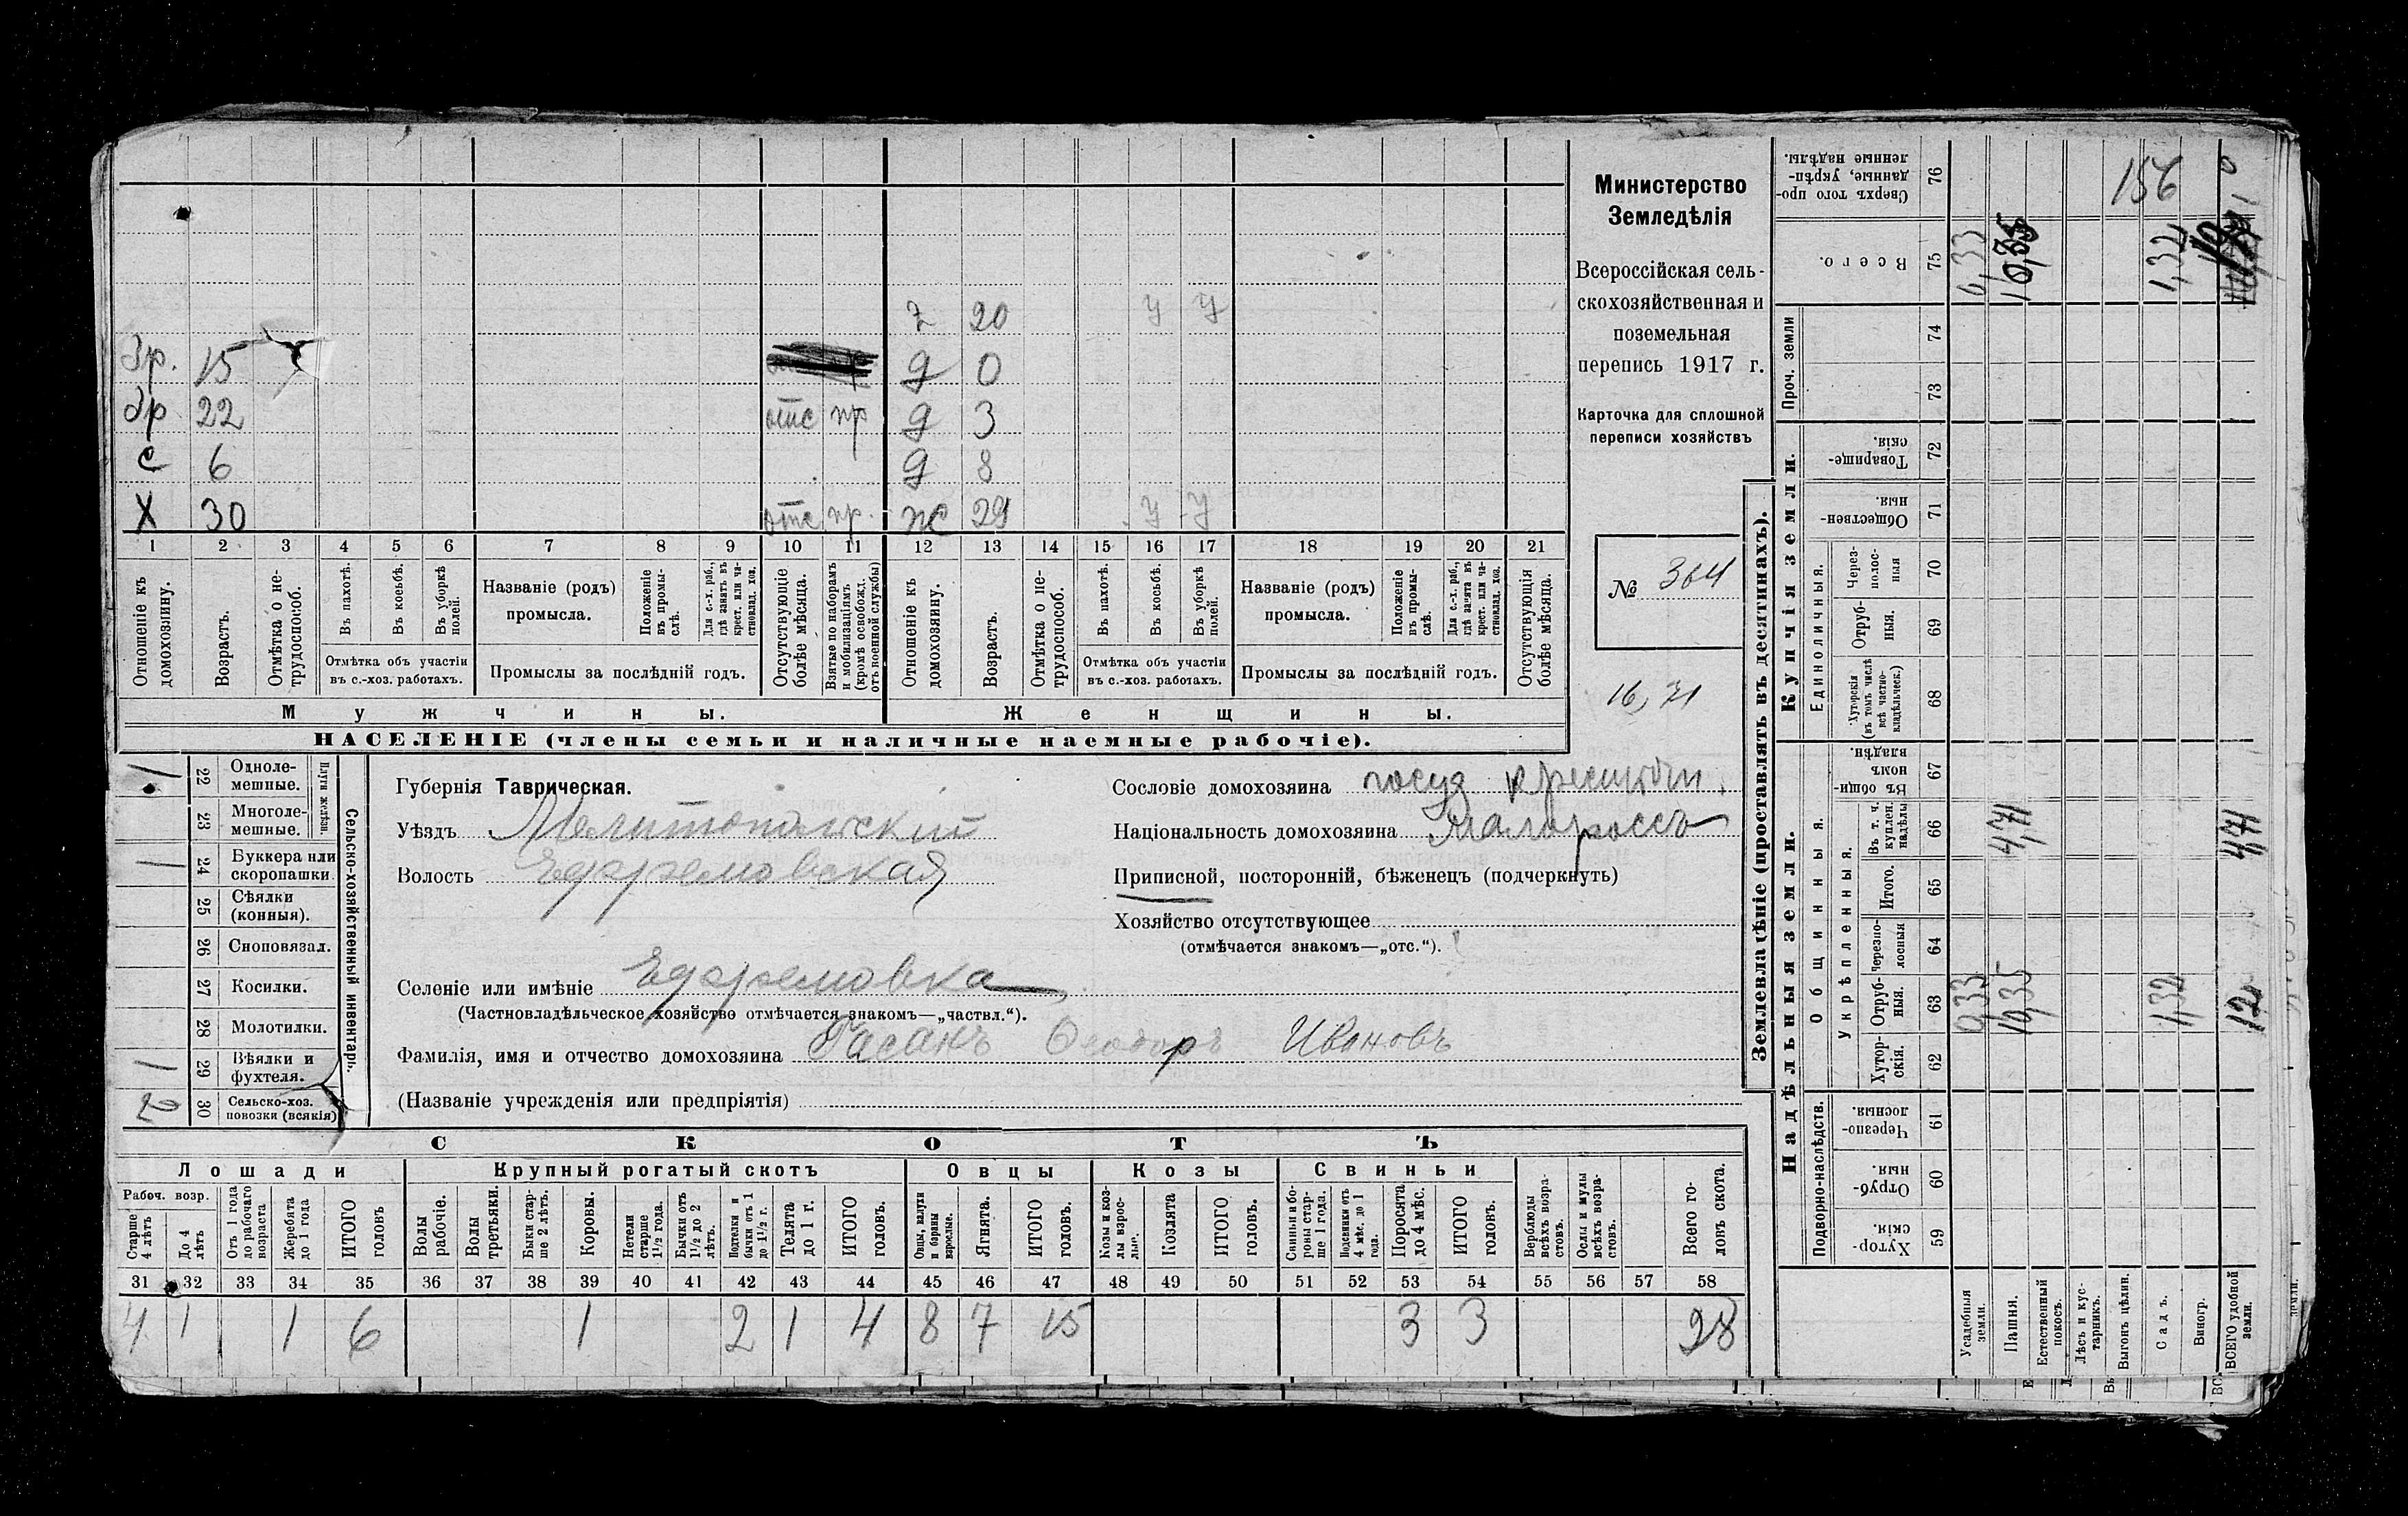 Министерство
Земледѣлія
Всероссійская сель-
скохозяйственная и
поземельная
перепись 1917 г.
Карточка для сплошной
переписи хозяйствъ
№ 364
16,71
z 20 У У
Зр. 15 д 0
др 22 отс пр д 3
с 6 д 8
Х 30 отс. пр. ж 29 У У
1 2 3 4 5 6 7 8 9 10 11 12 13 14 15 16 17 18 19 20 21
Отношеніе къ домохозяину.
Возрастъ.
Отмѣтка о не-трудоспособ.
Въ пахотѣ.
Въ косьбѣ.
Въ уборкѣ полей.
Отмѣтка объ участіи
въ с.-хоз. работахъ.
Названіе (родъ)
промысла.
Положеніе въ промы-слѣ.
Для с.-х. раб., гдѣ занятъ въ крест. или ча-стновлад. хоз.
Промыслы за послѣдній годъ.
Отсутствующіе болѣе мѣсяца.
Взятые по наборамъ и мобилизаціямъ (кромѣ освобожд. отъ военной службы)
Отношеніе къ домохозяину.
Возрастъ.
Отмѣтка о не-трудоспособ.
Въ пахотѣ.
Въ косьбѣ.
Въ уборкѣ полей.
Отмѣтка объ участіи
въ с.-хоз. работахъ.
Названіе (родъ)
промысла.
Положеніе въ промы-слѣ.
Для с.-х. раб., гдѣ занята въ крест. или ча-стновлад. хоз.
Промыслы за послѣдній годъ.
Отсутствующія болѣе мѣсяца.
Мужчины. Женщины.
НАСЕЛЕНІЕ (члены семьи и наличные наемные рабочіе).
Сельско-хозяйственный инвентарь.
Плуги желѣзн.
1 22 Одноле-мешные.
23 Многоле-мешные.
1 24 Буккера или скоропашки.
25 Сѣялки (конныя).
26 Сноповязал.
27 Косилки.
28 Молотилки.
1 29 Вѣялки и фухтеля.
2 30 Сельско-хоз. повозки (всякія)
Губернія Таврическая.
Уѣздъ Мелитопольский
Волость Ефремовская
Селеніе или имѣніе Ефремовка
(Частновладѣльческое хозяйство отмѣчается знакомъ—„частвл.“).
Фамилія, имя и отчество домохозяина Гасанъ Феодоръ Ивановъ
(Названіе учрежденія или предпріятія)
Сословіе домохозяина госуд крестьян
Національность домохозяина Малороссъ
Приписной, посторонній, бѣженецъ (подчеркнуть)
Хозяйство отсутствующее
(отмѣчается знакомъ—„отс.“).
СКОТЪ
Лошади Крупный рогатый скотъ Овцы Козы Свиньи
Рабоч. возр.
Старше 4 лѣтъ
До 4 лѣтъ
Отъ 1 года до рабочаго возраста
Жеребята до 1 года
ИТОГО головъ
Волы рабочіе.
Волы третьяки.
Быки стар-ше 2 лѣтъ.
Коровы.
Нетели старше 1½ года.
Бычки отъ 1½ до 2 лѣтъ.
Подтелки и бычки отъ 1 до 1½ г.
Телята до 1 г.
ИТОГО головъ.
Овцы, валухи и бараны взрослые.
Ягнята.
ИТОГО головъ.
Козы и коз-лы взрос-лые.
Козлята
ИТОГО головъ.
Свиньи и бо-ровы стар-ше 1 года.
Подсвинки отъ 4 мѣс. до 1 года.
Поросята до 4 мѣс.
ИТОГО головъ.
Верблюды всѣхъ возра-стовъ.
Ослы и мулы всѣхъ возра-стовъ.
Всего го-ловъ скота.
31 32 33 34 35 36 37 38 39 40 41 42 43 44 45 46 47 48 49 50 51 52 53 54 55 56 57 58
4 1 1 6 1 2 1 4 8 7 15 3 3 28
Землевладѣніе (проставлять въ десятинахъ).
Надѣльныя земли. Купчія земли. Проч. земли
Подворно-наслѣдств.
Общинныя.
Укрѣпленныя.
Единоличныя.
59 Хутор-скія.
60 Отруб-ныя.
61 Черезпо-лосныя.
62 Хутор-скія.
63 Отруб-ныя.
64 Черезпо-лосныя
65 Итого.
66 Въ т. ч. куплен. надѣлы
67 Въ общин-номъ владѣн.
68 Хуторскія (въ томъ числѣ всѣ частно-владѣльческ.)
69 Отруб-ныя.
70 Через-полос-ныя
71 Обществен-ныя.
72 Товарище-скія.
73
74
75 Всего.
76 Сверхъ того про-данные, укрѣп-ленные надѣлы.
Усадебныя земли. 0,33 0,33
Пашня. 10,35 4,71
Естественный покосъ.
Лѣсъ и кус-тарникъ.
Выгонъ цѣлин.
Садъ. 1,32 1,32
Виногр.
ВСЕГО удобной земли. 12, 4,71
156